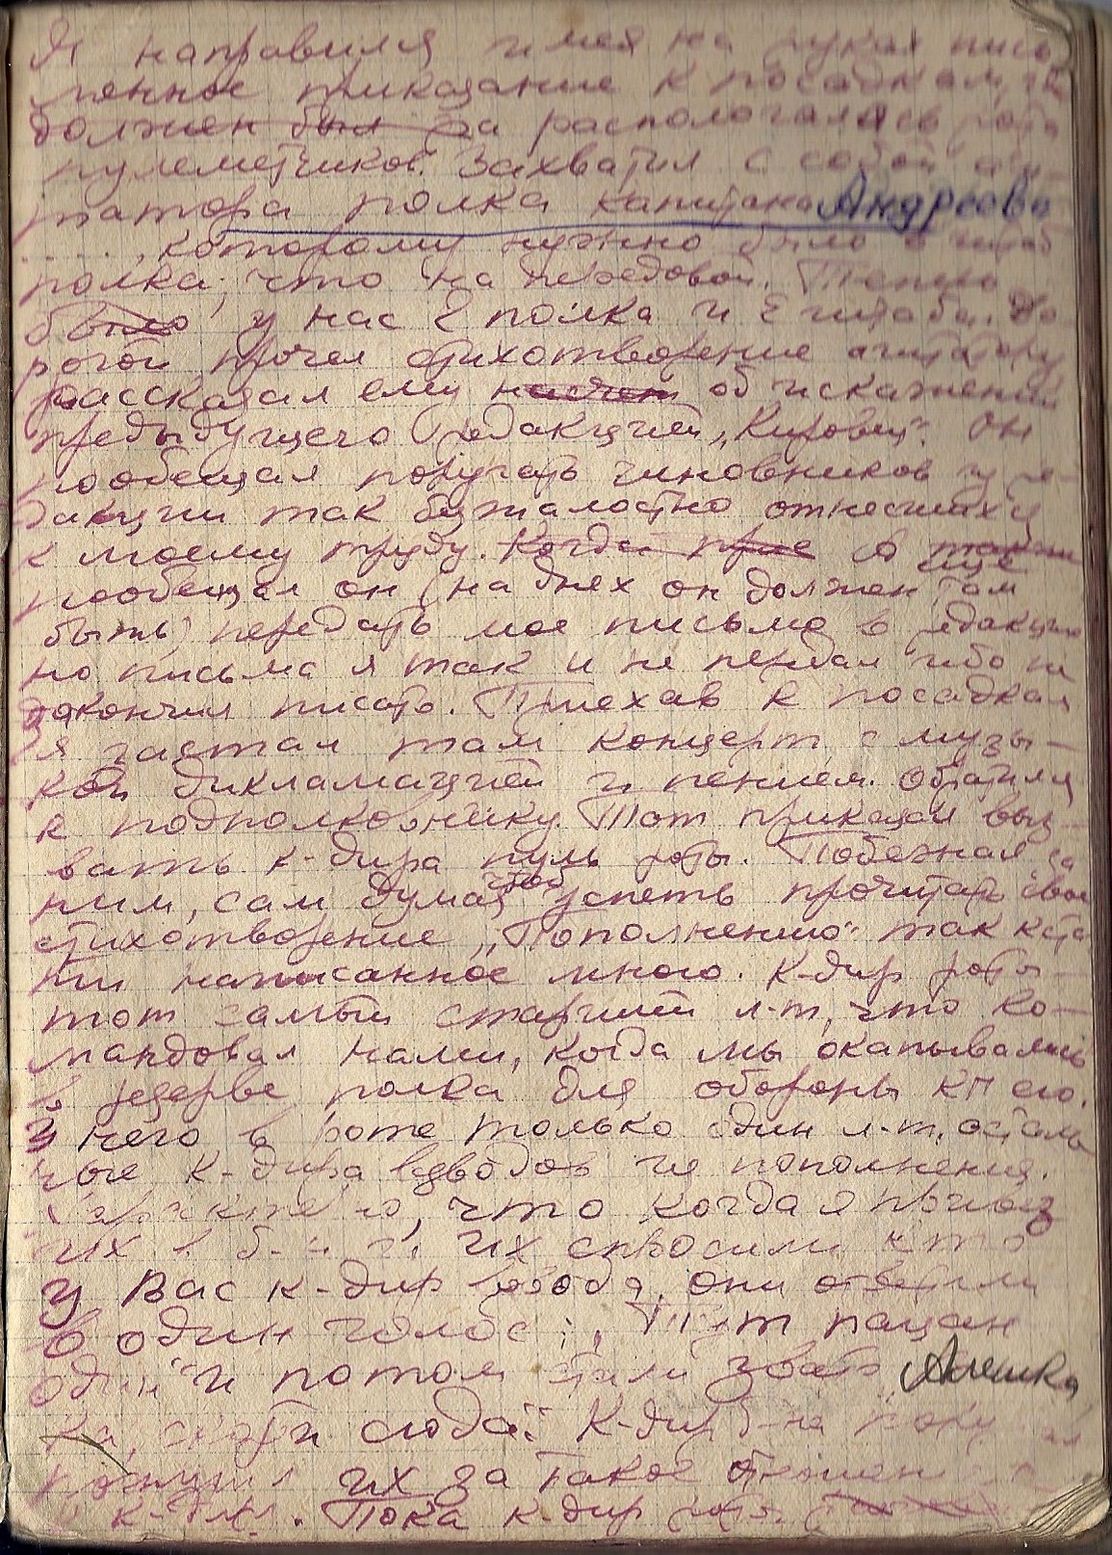 Я направился имея на руках пись
менное приказание к посадкам, где
должен был да располагалась рота
пулеметчиков. Захватил с собой аги-
татора полка капитана Андреева
, которому нужно было в штаб
полка, что на передовой. Теперь
было у нас 2 полка и 2 штаба. До
рогой прочел стихотворение агитатору
рассказал ему насчет об искажении
предыдущего редакцией „Кировец“. Он
пообещал поругать чиновников из ре-
дакции так безжалостно отнесшихся
к моему труду. Когда прие В также
еще
пообещал он (на днях он должен там
быть) передать мое письмо в редакцию
но письма я так и не передал ибо не
закончил писать. Приехав к посадкам
я застал там концерт с музы-
кой дикламацией и пением. Обратился
к подполковнику. Тот приказал выз-
вать к-дира пуль роты. Побежал за
ним, сам думая чтоб успеть прочитать свое
стихотворение „Пополнению“ так кста
ти написанное мною. К-дир роты
тот самый старший л-т, что ко-
мандовал нами, когда мы окапывались
в резерве полка для обороны КП его.
У него в роте только один л-т, осталь
ные к-дира взводов из пополнения.
Характерно, что когда я привез
их в б-н и их спросили кто
у вас к-дир взвода, они ответили
в один голос: „Тут пацан
один“ и потом стали звать „Алешка,
ка, скати сюда“. К-дир б-на пору
их за такое отношен
к к-дир. Пока к-дир роты